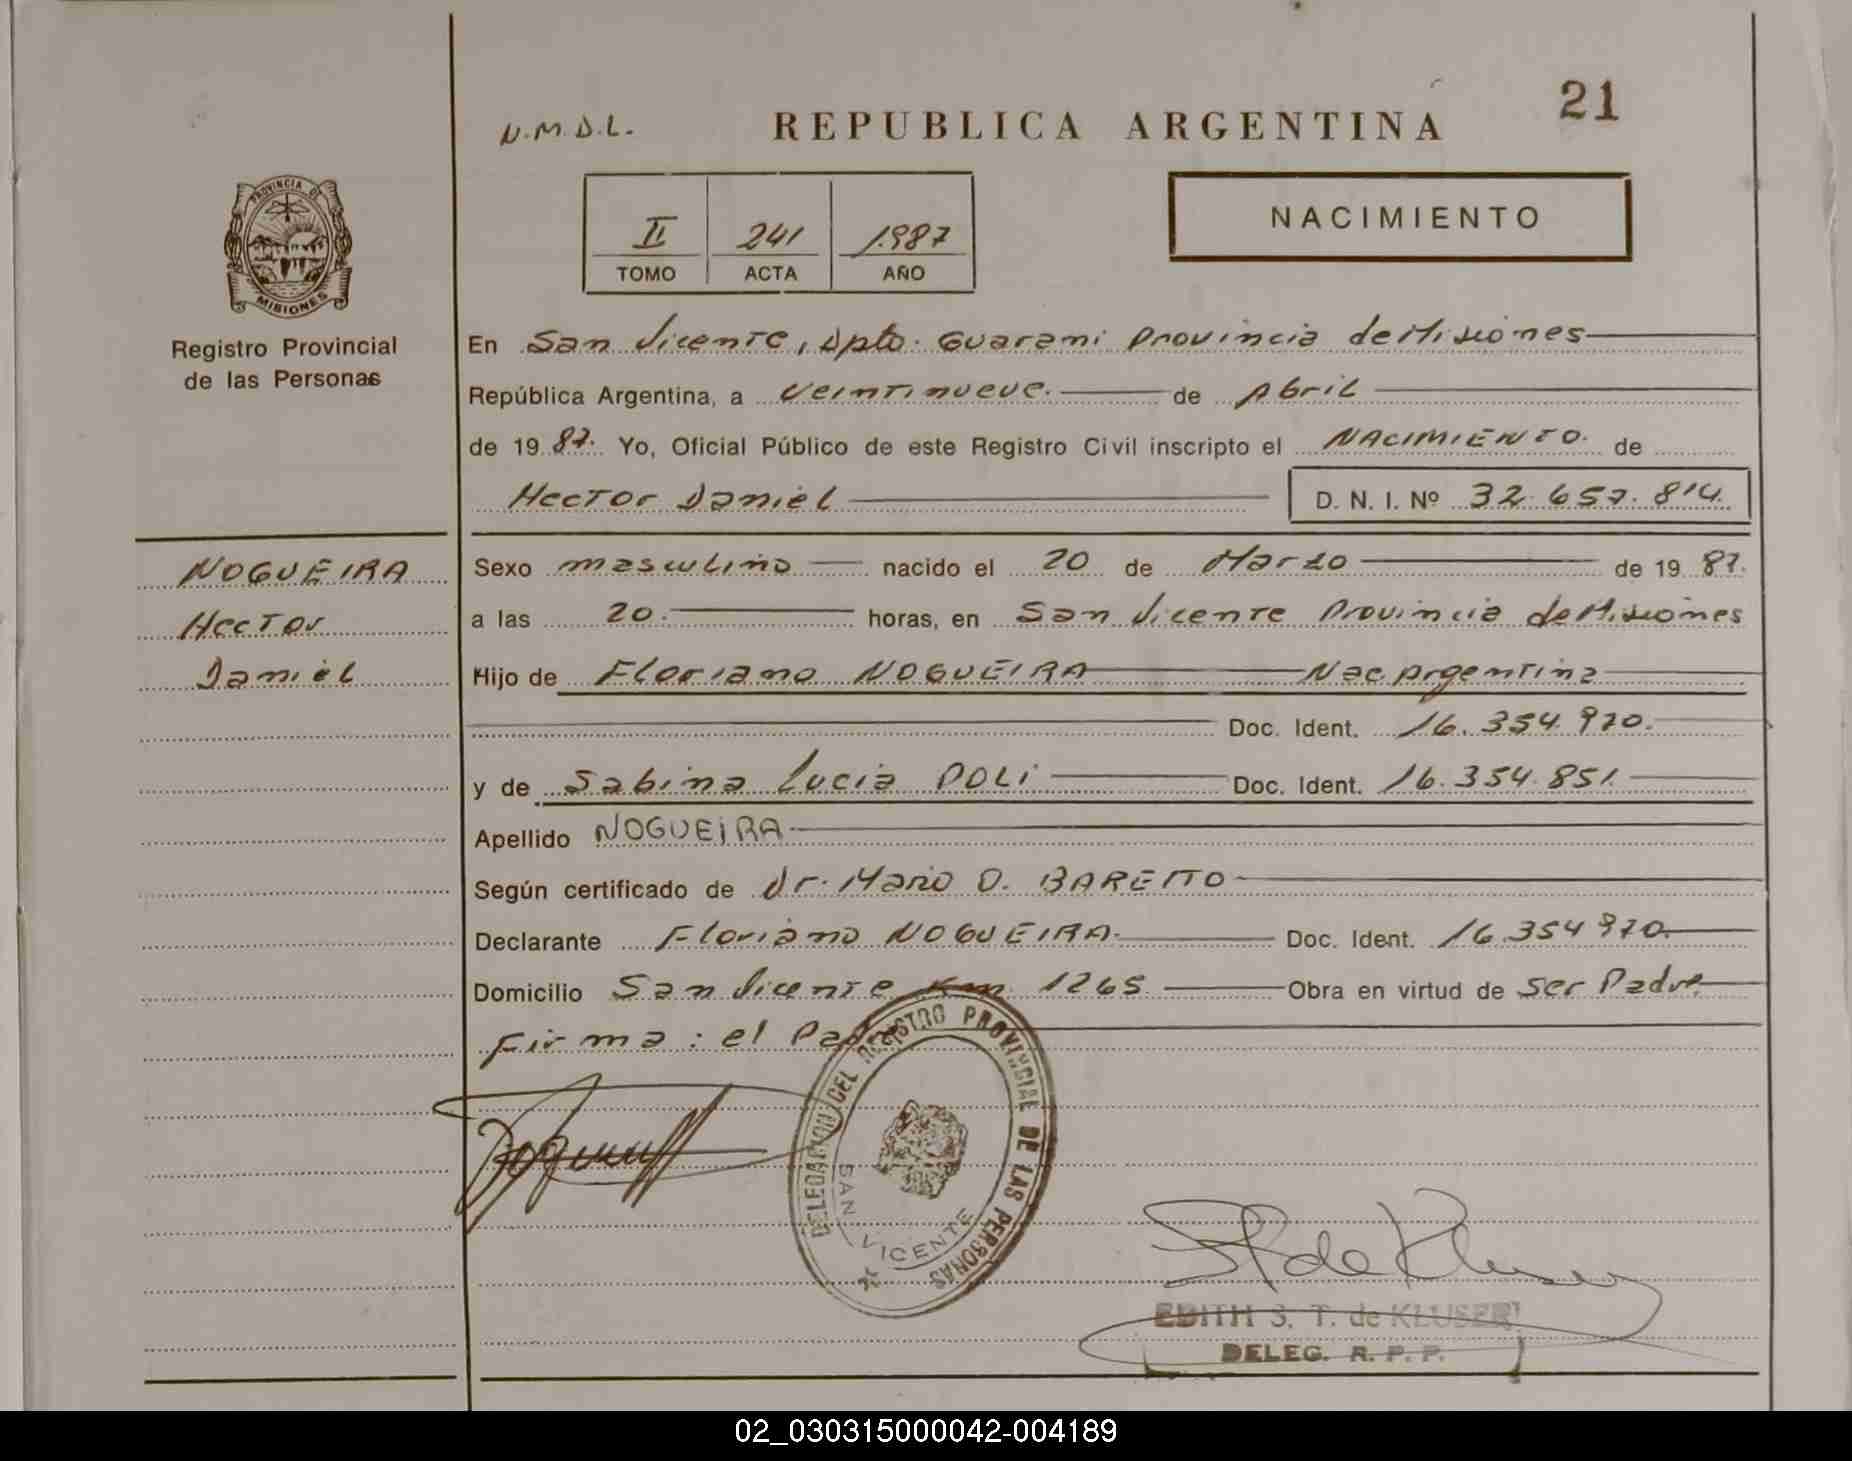 21
N.M.D.L. REPUBLICA ARGENTINA
PROVINCIA DE
MISIONES
Registro Provincial
de las Personas
II 241 1987
TOMO ACTA AÑO
NACIMIENTO
En San Vicente, Dpto. Guarani Provincia de Misiones
República Argentina, a veintinueve. de Abril
de 19 87. Yo, Oficial Público de este Registro Civil inscripto el NACIMIENTO. de
Hector Daniel D. N. I. Nº 32.657.814.
NOGUEIRA
Hector
Daniel
Sexo masculino nacido el 20 de Marzo de 19 87.
a las 20. horas, en San Vicente Provincia de Misiones
Hijo de Floriano NOGUEIRA Nac. Argentina
Doc. Ident. 16.354.970.
y de Sabina Lucia POLI Doc. Ident. 16.354.851.
Apellido NOGUEIRA
Según certificado de Dr. Mario O. BARETTO
Declarante Floriano NOGUEIRA. Doc. Ident. 16.354 970.
Domicilio San Vicente Km. 1265 Obra en virtud de ser Padre
Firma: el Padre
DELEGACION DEL REGISTRO PROVINCIAL DE LAS PERSONAS
SAN VICENTE
EDITH S. T. de KLUSER
DELEG. R. P. P.
02_030315000042-004189